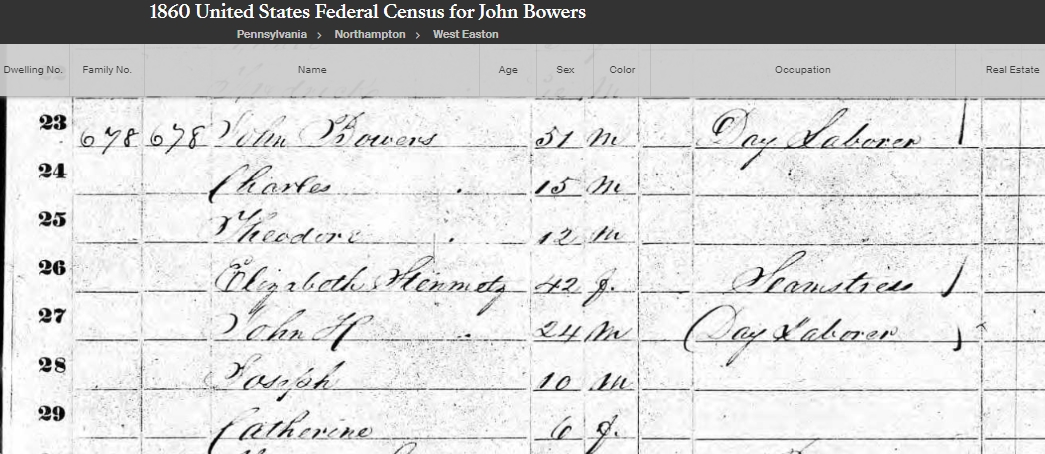 1860 United States Federal Census for John Bowers
Pennsylvania > Northampton > West Easton
Dwelling No. Family No. Name Age Sex Color Occupation Real Estate
23 678 678 John Bowers 51 m Day Laborer
24 Charles 15 m
25 Theodore 12 m
26 Elizabeth Stinmetz 42 f. Seamstress
27 John H 24 m Day Laborer
28 Joseph 10 m
29 Catherine 6 f.